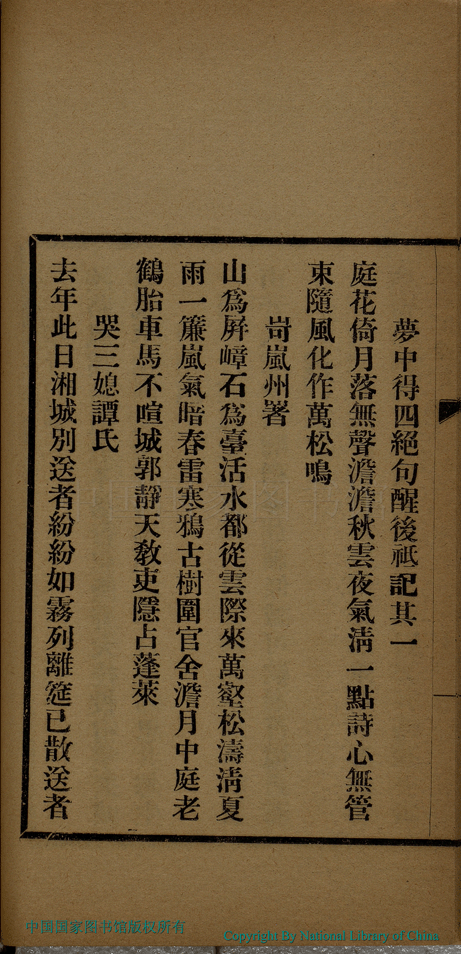 夢中得四絕句醒後祗記其一
庭花倚月落無聲澹澹秋雲夜氣淸一點詩心無管
束隨風化作萬松鳴
岢嵐州署
山爲屛嶂石爲臺活水都從雲際來萬壑松濤淸夏
雨一簾嵐氣暗春雷寒鴉古樹圍官舍澹月中庭老
鶴胎車馬不喧城郭靜天敎吏隱占蓬萊
哭三媳譚氏
去年此日湘城別送者紛紛如霧列離筵已散送者
中国国家图书馆版权所有
Copyright By National Library of China